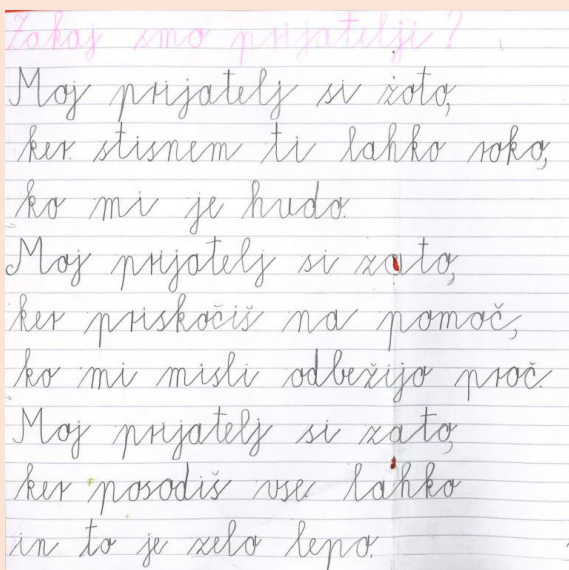 Zakaj smo prijatelji?
Moj prijatelj si zato,
ker stisnem ti lahko roko,
ko mi je hudo.
Moj prijatelj si zato,
ker priskočiš na pomoč,
ko mi misli odbežijo proč.
Moj prijatelj si zato,
ker posodiš vse lahko
in to je zelo lepo.